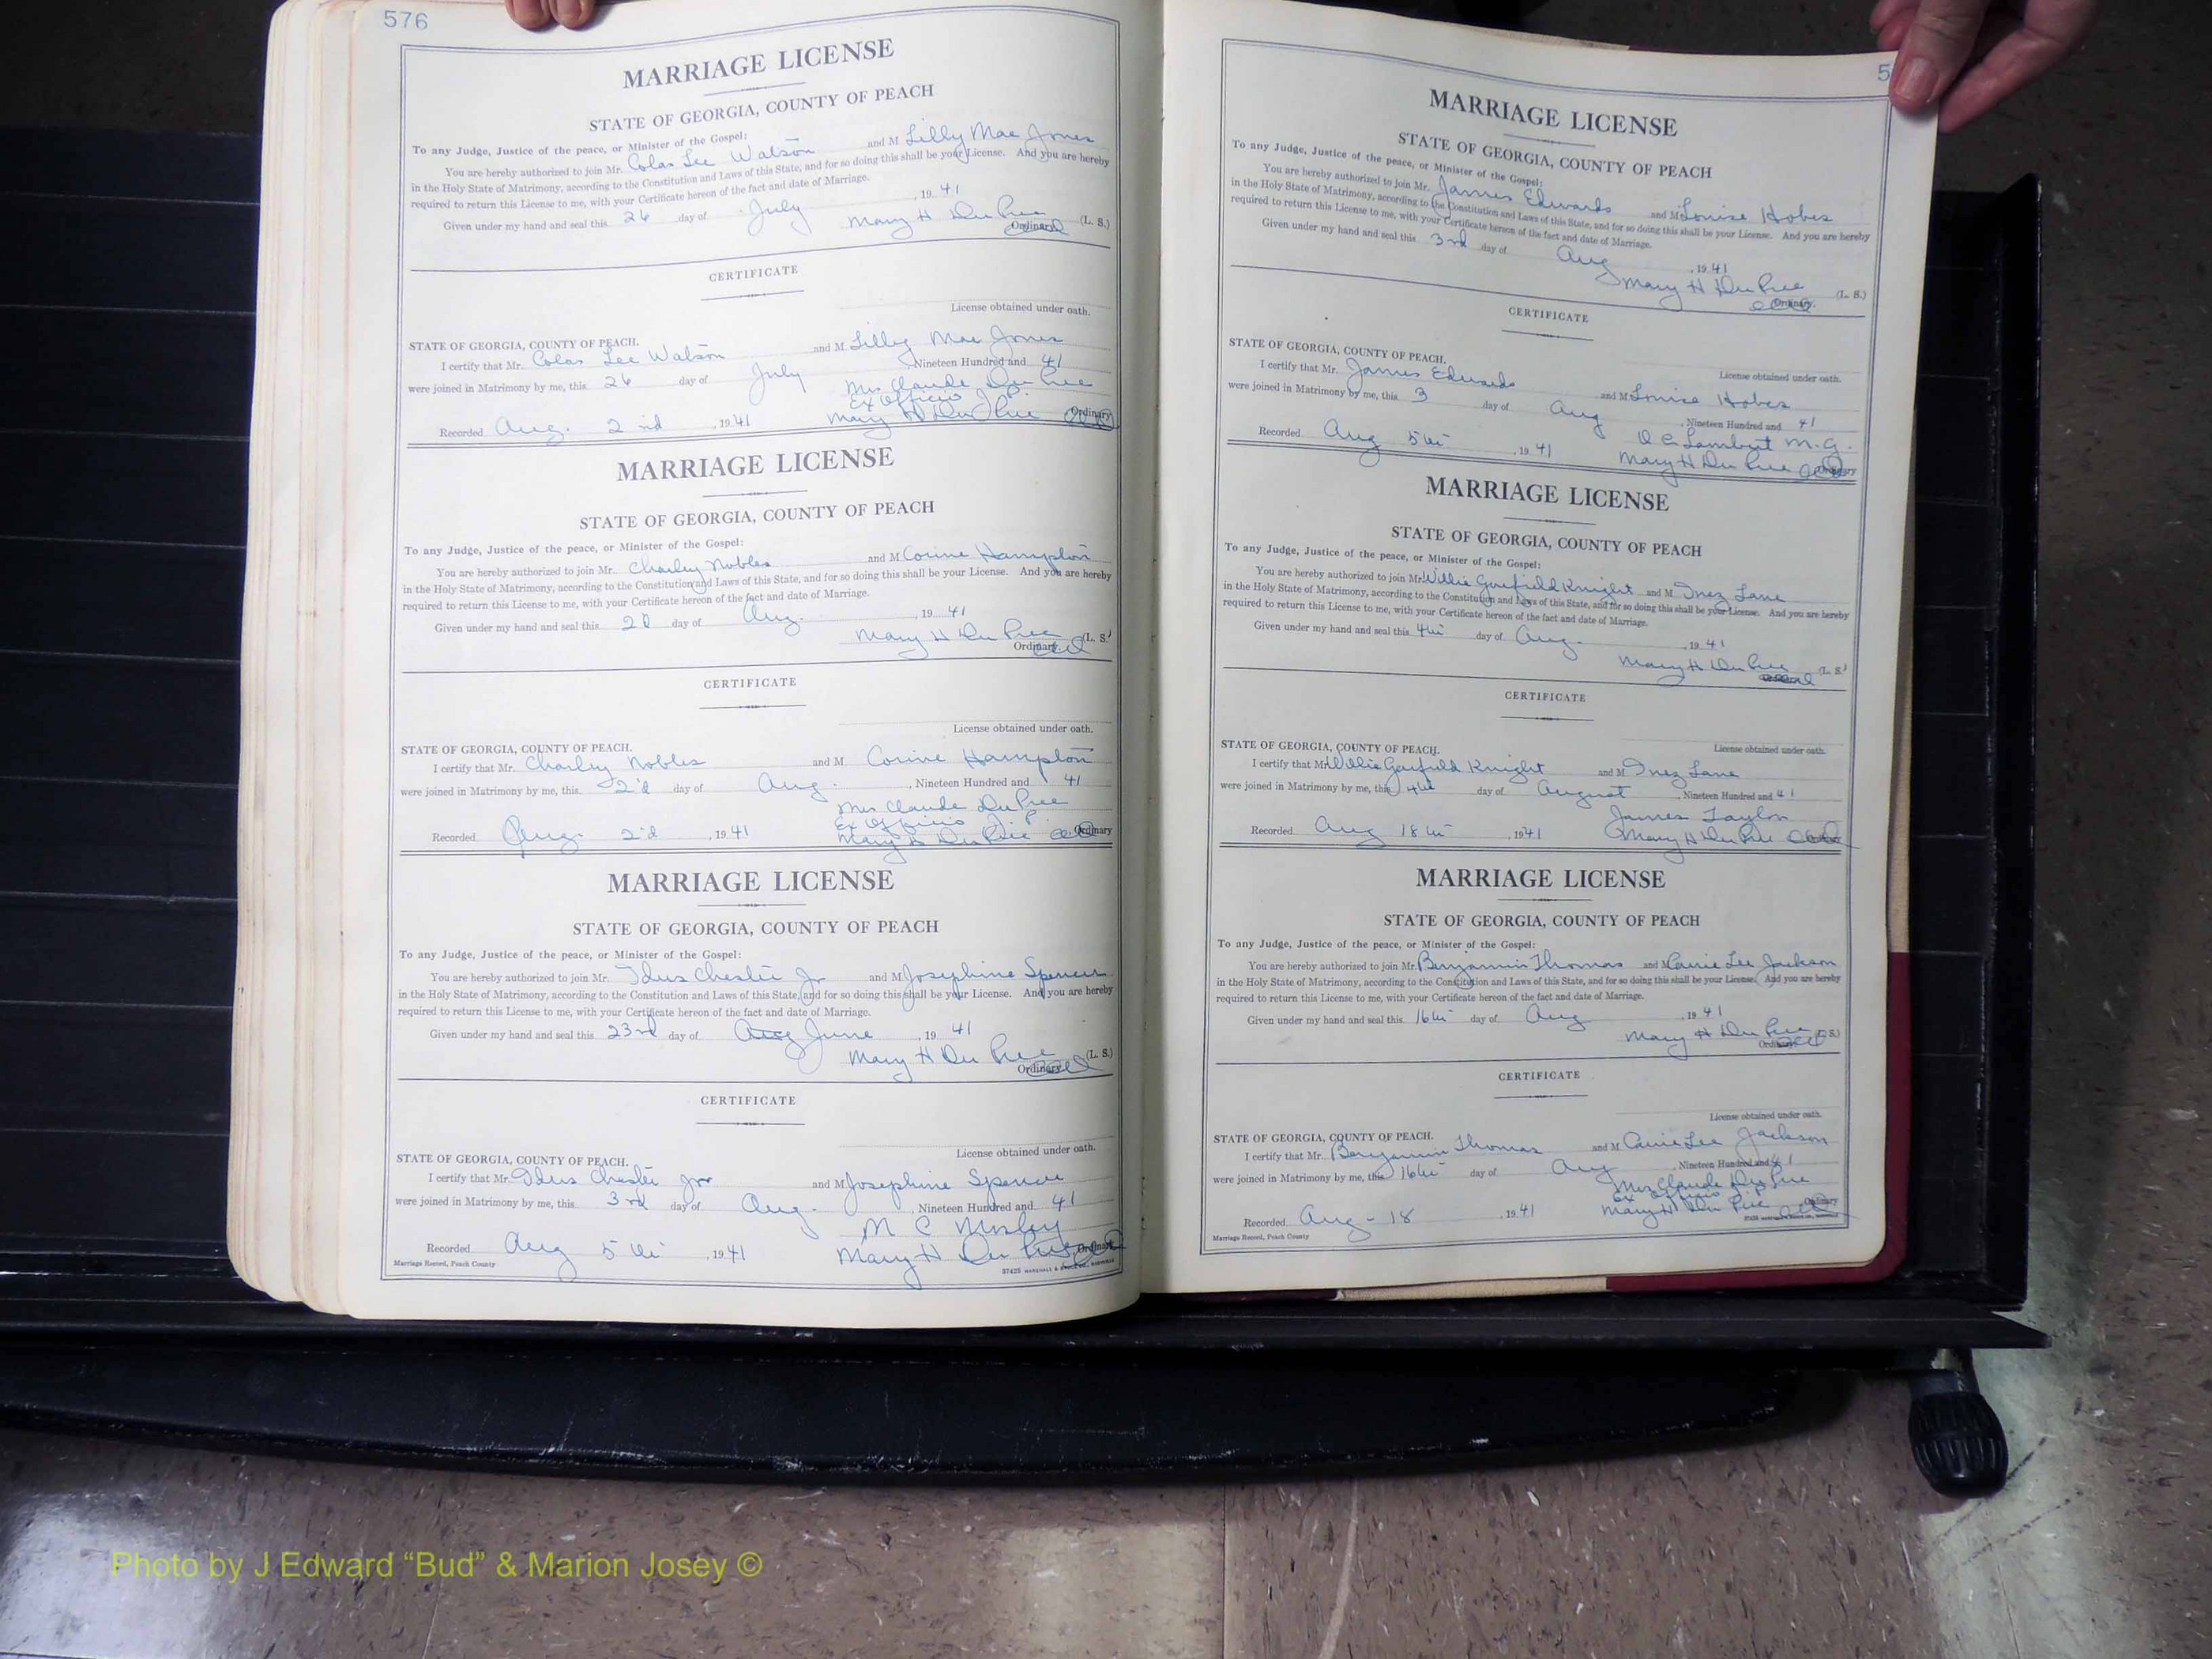 576
MARRIAGE LICENSE
STATE OF GEORGIA, COUNTY OF PEACH
To any Judge, Justice of the peace, or Minister of the Gospel:
You are hereby authorized to join Mr. Colas Lee Watson and M Lilly Mae Jones
in the Holy State of Matrimony, according to the Constitution and Laws of this State, and for so doing this shall be your License. And you are hereby
required to return this License to me, with your Certificate hereon of the fact and date of Marriage.
Given under my hand and seal this 26 day of July, 1941
Mary H DuPree (L. S.)
Ordinary
CERTIFICATE
License obtained under oath.
STATE OF GEORGIA, COUNTY OF PEACH.
I certify that Mr. Colas Lee Watson and M Lilly Mae Jones
were joined in Matrimony by me, this 26 day of July Nineteen Hundred and 41
Mrs Claude DuPree
Ex Officio J.P.
Recorded Aug. 2nd, 1941 Mary H DuPree Ordinary
MARRIAGE LICENSE
STATE OF GEORGIA, COUNTY OF PEACH
To any Judge, Justice of the peace, or Minister of the Gospel:
You are hereby authorized to join Mr. Charley Nobles and M Corine Hampton
in the Holy State of Matrimony, according to the Constitution and Laws of this State, and for so doing this shall be your License. And you are hereby
required to return this License to me, with your Certificate hereon of the fact and date of Marriage.
Given under my hand and seal this 2d day of Aug., 1941
Mary H DuPree (L. S.)
Ordinary
CERTIFICATE
License obtained under oath.
STATE OF GEORGIA, COUNTY OF PEACH.
I certify that Mr. Charley Nobles and M Corine Hampton
were joined in Matrimony by me, this 2'd day of Aug., Nineteen Hundred and 41
Mrs Claude DuPree
Ex Officio J.P.
Recorded Aug. 2'd, 1941 Mary H DuPree Ordinary
MARRIAGE LICENSE
STATE OF GEORGIA, COUNTY OF PEACH
To any Judge, Justice of the peace, or Minister of the Gospel:
You are hereby authorized to join Mr. Idus Chester Jr and M Josephine Spencer
in the Holy State of Matrimony, according to the Constitution and Laws of this State, and for so doing this shall be your License. And you are hereby
required to return this License to me, with your Certificate hereon of the fact and date of Marriage.
Given under my hand and seal this 23rd day of Aug June, 1941
Mary H DuPree (L. S.)
Ordinary
CERTIFICATE
License obtained under oath.
STATE OF GEORGIA, COUNTY OF PEACH.
I certify that Mr. Idus Chester Jr and M Josephine Spencer
were joined in Matrimony by me, this 3rd day of Aug., Nineteen Hundred and 41
M C Mosley
Recorded Aug 5th, 1941 Mary H DuPree Ordinary
Marriage Record, Peach County
5
MARRIAGE LICENSE
STATE OF GEORGIA, COUNTY OF PEACH
To any Judge, Justice of the peace, or Minister of the Gospel:
You are hereby authorized to join Mr. James Edwards and M Louise Hobes
in the Holy State of Matrimony, according to the Constitution and Laws of this State, and for so doing this shall be your License. And you are hereby
required to return this License to me, with your Certificate hereon of the fact and date of Marriage.
Given under my hand and seal this 3rd day of Aug, 1941
Mary H DuPree (L. S.)
Ordinary.
CERTIFICATE
License obtained under oath.
STATE OF GEORGIA, COUNTY OF PEACH.
I certify that Mr. James Edwards and M Louise Hobes
were joined in Matrimony by me, this 3 day of Aug, Nineteen Hundred and 41
Lambert M.G.
Recorded Aug 5th, 1941 Mary H DuPree Ordinary
MARRIAGE LICENSE
STATE OF GEORGIA, COUNTY OF PEACH
To any Judge, Justice of the peace, or Minister of the Gospel:
You are hereby authorized to join Mr. Willie Garfield Knight and M Inez Lane
in the Holy State of Matrimony, according to the Constitution and Laws of this State, and for so doing this shall be your License. And you are hereby
required to return this License to me, with your Certificate hereon of the fact and date of Marriage.
Given under my hand and seal this 4th day of Aug., 1941
Mary H DuPree (L. S.)
CERTIFICATE
License obtained under oath.
STATE OF GEORGIA, COUNTY OF PEACH.
I certify that Mr. Willie Garfield Knight and M Inez Lane
were joined in Matrimony by me, this 4th day of August, Nineteen Hundred and 41
James Taylor
Recorded Aug 18th, 1941 Mary H DuPree
MARRIAGE LICENSE
STATE OF GEORGIA, COUNTY OF PEACH
To any Judge, Justice of the peace, or Minister of the Gospel:
You are hereby authorized to join Mr. Benjamin Thomas and M Carrie Lee Jackson
in the Holy State of Matrimony, according to the Constitution and Laws of this State, and for so doing this shall be your License. And you are hereby
required to return this License to me, with your Certificate hereon of the fact and date of Marriage.
Given under my hand and seal this 16th day of Aug, 1941
Mary H DuPree (L. S.)
Ordinary
CERTIFICATE
License obtained under oath.
STATE OF GEORGIA, COUNTY OF PEACH.
I certify that Mr. Benjamin Thomas and M Carrie Lee Jackson
were joined in Matrimony by me, this 16th day of Aug, Nineteen Hundred and 41
Mrs Claude DuPree
Ex Officio J.P.
Recorded Aug - 18, 1941 Mary H DuPree Ordinary
Marriage Record, Peach County
Photo by J Edward “Bud” & Marion Josey ©